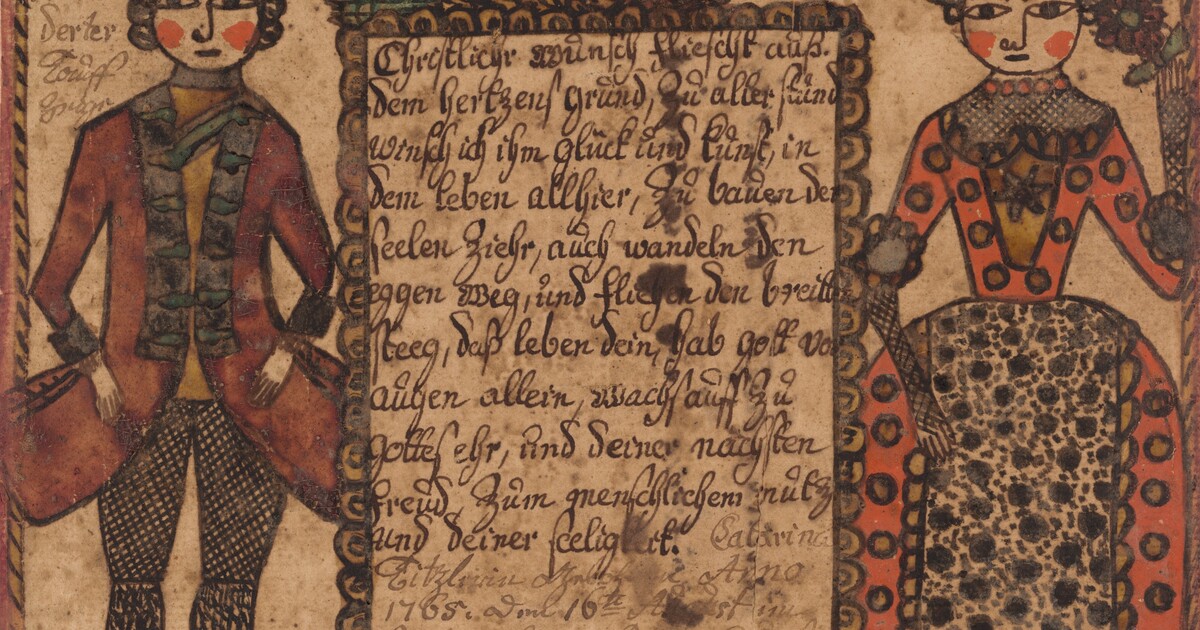 derter
Tauff
Christlichr wunsch fliescht auß.
dem hertzens grund, Zu aller stund
winsch ich ihm glück und kunst, in
dem leben allhier, Zu bauen der
seelen Ziehr, auch wandeln den
eggen weg, und fliehen den breitten
steeg, daß leben dein, hab gott vor
augen allein, wachs auff Zu
gottes ehr, und deiner nächsten
freud, Zum menschlichem nutz
und deiner seeligkeit. Catarina
Anno
1765. den 16te August im